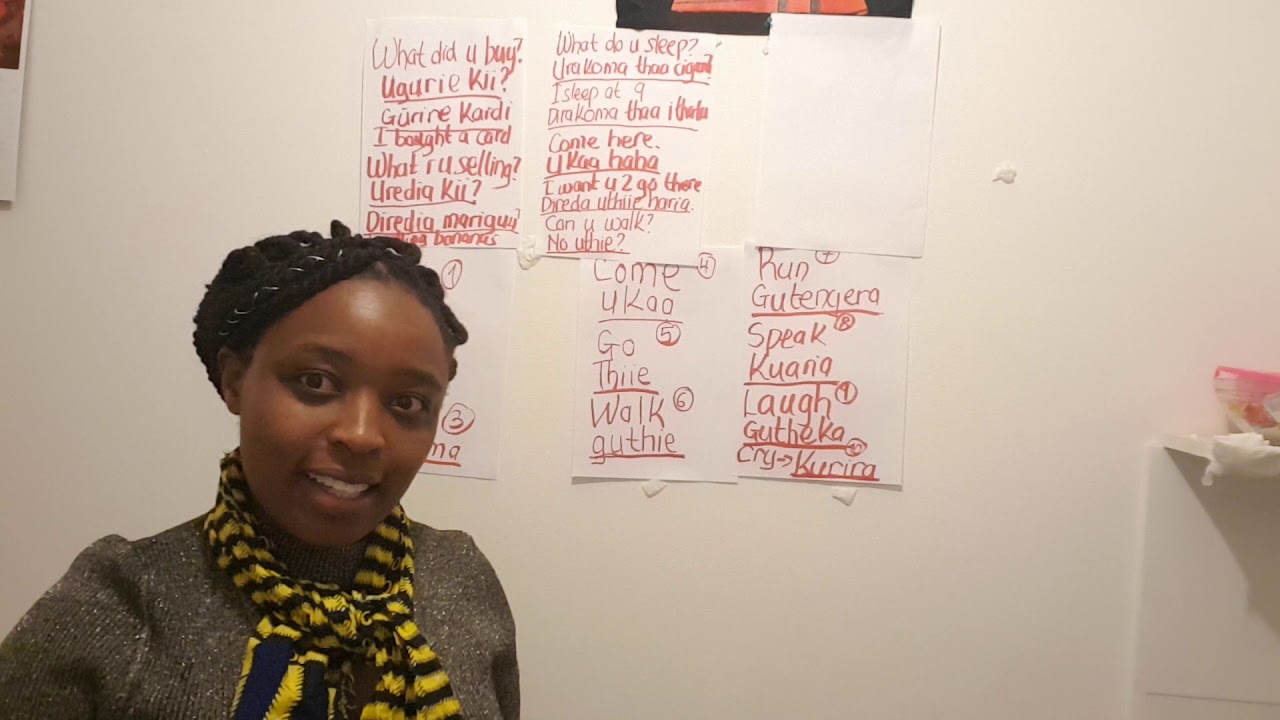 What did u buy?
Ugurie Kii?
Gũrine Kardi
I bought a card
What r u selling?
Uredia Kii?
Diredia mariguu?
bananas
What do u sleep?
Urakoma thaa
I sleep at 9
Dirakoma thaa ithatu
Come here.
UKaa haha
I want u 2 go there
Direda uthiie haria.
Can u walk?
No uthie?
1
3
ma
Come 4
UKaa
Go 5
Thiie
Walk 6
guthie
Run 7
Gutengera
Speak 8
Kuaria
Laugh 9
Gutheka
Cry→Kurira 10